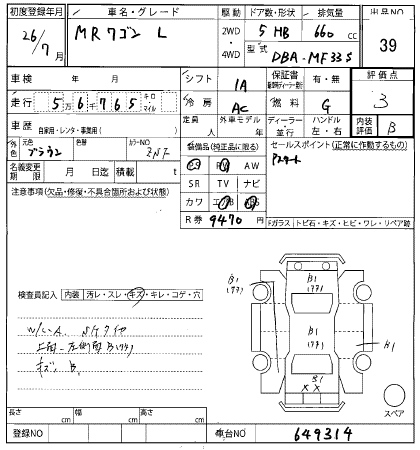 初度登録年月 車名・グレード 駆動 ドア数・形状 排気量 出品NO
26/7月 MRワゴン L 2WD・4WD 5 HB 660 cc 39
型式 DBA-MF33S
車検 年 月 シフト IA 保証書 有・無 評価点
走行 5万6千765 キロ・マイル 冷房 AC 燃料 G 3
車歴 自家用・レンタ・事業用( ) 定員 人 外車モデル 年 ディーラー・並行 ハンドル 左・右 内装評価 B
外色 元色 ブラウン 色替 カラーNO ZNF 装備品(純正品に限る) セールスポイント(正常に作動するもの)
PS PW AW
名義変更期限 月 日迄 積載 t SR TV ナビ
注意事項(欠品・修復・不具合箇所および状態) カワ
R券 9470 円 Fガラス トビ石・キズ・ヒビ・ワレ・リペア跡
検査員記入 内装 汚レ・スレ・キズ・キレ・コゲ・穴
B1
B1
B1
A1
B1
X X
スペア
長さ cm 幅 cm 高さ cm
登録NO 車台NO 649314